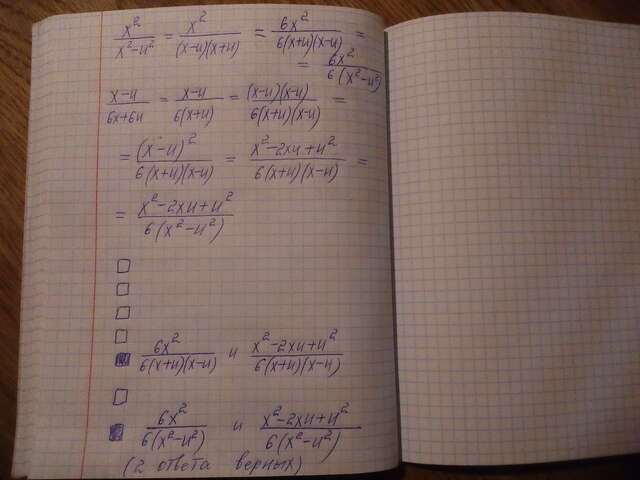 x²/(x²-u²) = x²/((x-u)(x+u)) = 6x²/(6(x+u)(x-u)) =
= 6x²/(6(x²-u²))
(x-u)/(6x+6u) = (x-u)/(6(x+u)) = (x-u)(x-u)/(6(x+u)(x-u)) =
= (x-u)²/(6(x+u)(x-u)) = (x²-2xu+u²)/(6(x+u)(x-u)) =
= (x²-2xu+u²)/(6(x²-u²))
6x²/(6(x+u)(x-u)) и (x²-2xu+u²)/(6(x+u)(x-u))
6x²/(6(x²-u²)) и (x²-2xu+u²)/(6(x²-u²))
(2 ответа верных)